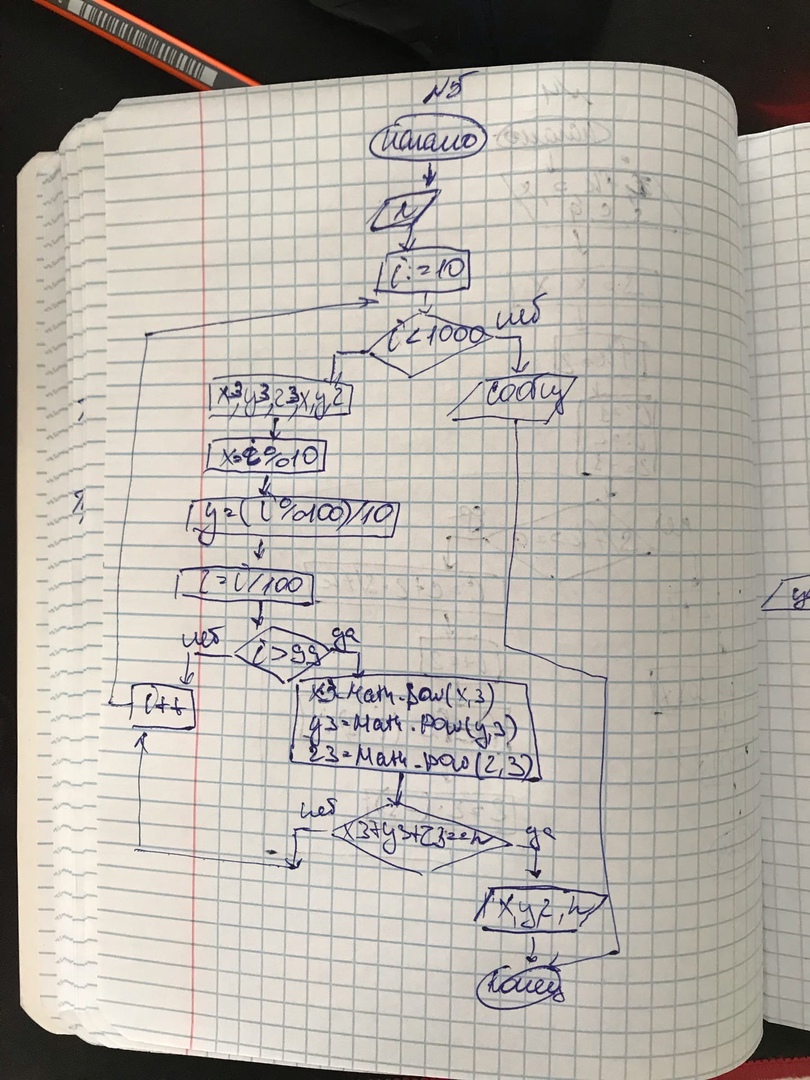 №5
начало
n
i:=10
i<1000
нет
x3,y3,z3,x,y,z
сообщ
x=i%10
y=(i%100)/10
z=i/100
нет
i>99
да
i++
x3=Math.pow(x,3)
y3=Math.pow(y,3)
z3=Math.pow(z,3)
нет
x3+y3+z3==n
да
x,y,z,n
конец